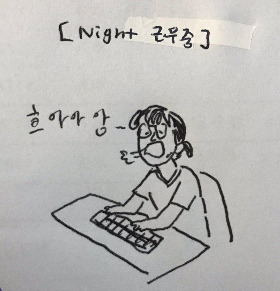 [Night 근무중]
흐아아앙~